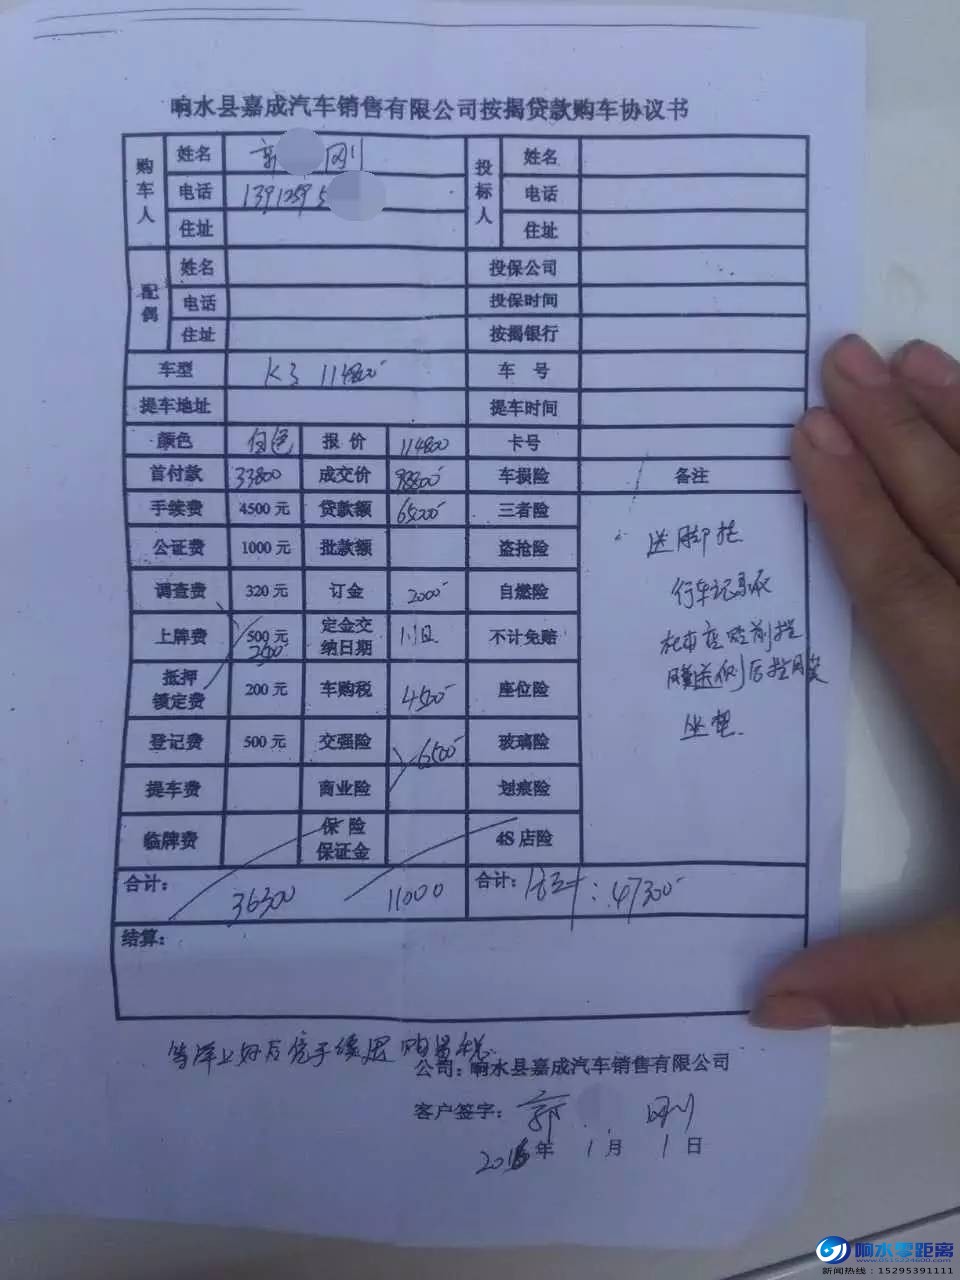 响水县嘉成汽车销售有限公司按揭贷款购车协议书
购车人 姓名 郭 刚 投标人 姓名
电话 13912595 电话
住址 住址
配偶 姓名 投保公司
电话 投保时间
住址 按揭银行
车型 K3 114800 车 号
提车地址 提车时间
颜色 白色 报 价 114800 卡号
首付款 33800 成交价 98800 车损险 备注
手续费 4500元 贷款额 65000 三者险
公证费 1000元 批款额 盗抢险
送脚垫
调查费 320元 订金 2000 自燃险
行车记录仪
上牌费 500元 2500 定金交纳日期 1.1日 不计免赔
在本店贴前挡
赠送侧后挡
抵押锁定费 200元 车购税 4500 座位险
坐垫
登记费 500元 交强险 6500 玻璃险
提车费 商业险 划痕险
临牌费 保 险保证金 4S店险
合计: 36300 11000 合计: 47300
结算:
等 上好后凭手续退购置税.
公司:响水县嘉成汽车销售有限公司
客户签字: 郭 刚
2016年 1月 1日
响水零距离
新闻热线:15295391111